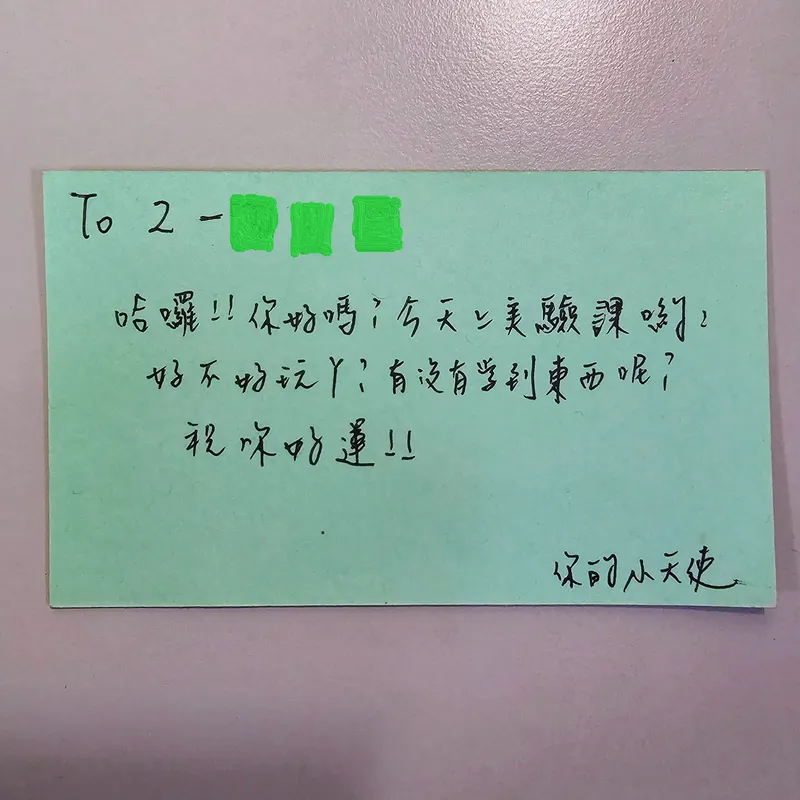 To 2-
哈囉!!你好嗎?今天上實驗課喲~
好不好玩丫?有沒有学到東西呢?
祝你好運!!
你的小天使